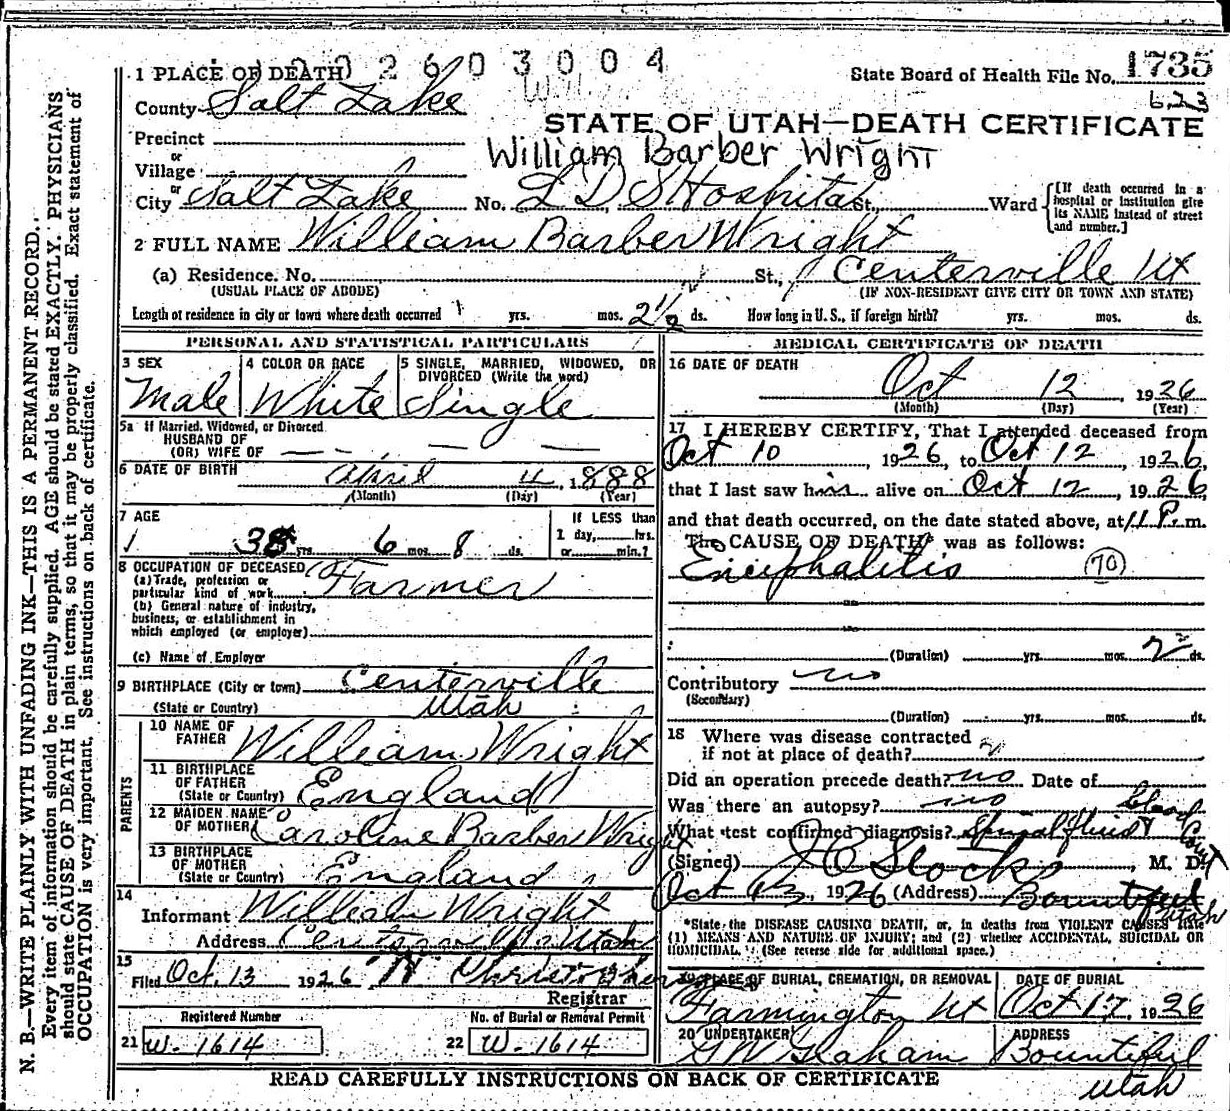 1 PLACE OF DEATH 2 6 0 3 0 0 4
State Board of Health File No. 1735
County Salt Lake
623
STATE OF UTAH—DEATH CERTIFICATE
Precinct
or
William Barber Wright
Village
or
City Salt Lake No. L D S Hospital St., Ward
[If death occurred in a hospital or institution give its NAME instead of street and number.]
2 FULL NAME William Barber Wright
(a) Residence. No. St., Centerville Ut
(USUAL PLACE OF ABODE) (IF NON-RESIDENT GIVE CITY OR TOWN AND STATE)
Length of residence in city or town where death occurred yrs. mos. 2 1/2 ds. How long in U. S., if foreign birth? yrs. mos. ds.
PERSONAL AND STATISTICAL PARTICULARS
3 SEX
Male
4 COLOR OR RACE
White
5 SINGLE, MARRIED, WIDOWED, OR
DIVORCED (Write the word)
Single
5a If Married, Widowed, or Divorced
HUSBAND OF
(OR) WIFE OF — — — —
6 DATE OF BIRTH April 4, 1888
(Month) (Day) (Year)
7 AGE
38 yrs. 6 mos. 8 ds.
If LESS than
1 day, hrs.
or min.?
8 OCCUPATION OF DECEASED
(a) Trade, profession or
particular kind of work Farmer
(b) General nature of industry,
business, or establishment in
which employed (or employer)
(c) Name of Employer
9 BIRTHPLACE (City or town) Centerville
(State or Country) Utah
PARENTS
10 NAME OF
FATHER William Wright
11 BIRTHPLACE
OF FATHER
(State or Country) England
12 MAIDEN NAME
OF MOTHER Caroline Barber Wright
13 BIRTHPLACE
OF MOTHER
(State or Country) England
14
Informant William Wright
Address Centerville Utah
15
Filed Oct. 13 1926
Registrar
Registered Number
21 W-1614
No. of Burial or Removal Permit
22 W-1614
MEDICAL CERTIFICATE OF DEATH
16 DATE OF DEATH
Oct 12, 1926
(Month) (Day) (Year)
17 I HEREBY CERTIFY, That I attended deceased from
Oct 10, 1926, to Oct 12, 1926,
that I last saw him alive on Oct 12, 1926,
and that death occurred, on the date stated above, at 11 P. m.
The CAUSE OF DEATH* was as follows:
Encephalitis (70)
(Duration) yrs. mos. 2 ds.
Contributory no
(Secondary)
(Duration) yrs. mos. ds.
18 Where was disease contracted
if not at place of death?
Did an operation precede death? no Date of
Was there an autopsy? no
What test confirmed diagnosis? Spinal fluid & blood Count
(Signed) J C Stocks, M. D.
Oct 13, 1926 (Address) Bountiful Utah
*State the DISEASE CAUSING DEATH, or, in deaths from VIOLENT CAUSES state
(1) MEANS AND NATURE OF INJURY; and (2) whether ACCIDENTAL, SUICIDAL OR
HOMICIDAL. (See reverse side for additional space.)
19 PLACE OF BURIAL, CREMATION, OR REMOVAL
Farmington Ut
DATE OF BURIAL
Oct 17, 1926
20 UNDERTAKER
G W Graham
ADDRESS
Bountiful
Utah
READ CAREFULLY INSTRUCTIONS ON BACK OF CERTIFICATE
N. B.—WRITE PLAINLY WITH UNFADING INK—THIS IS A PERMANENT RECORD.
Every item of information should be carefully supplied. AGE should be stated EXACTLY. PHYSICIANS
should state CAUSE OF DEATH in plain terms, so that it may be properly classified. Exact statement of
OCCUPATION is very important. See instructions on back of certificate.